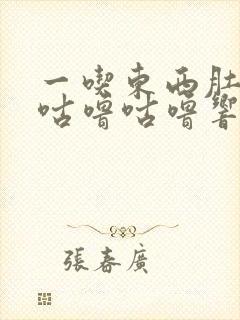 一喫東西肚
咕嚕咕嚕響
張春廣